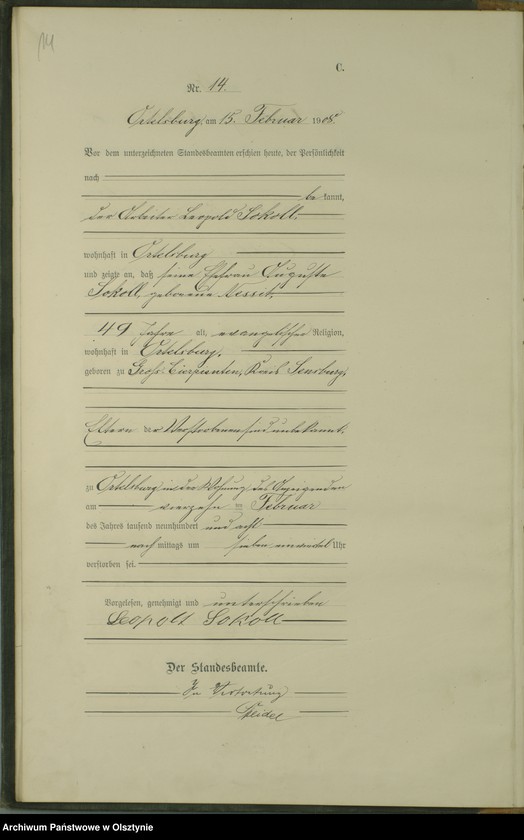 C.
Nr. 14.
Ortelsburg am 15. Februar 1908
Vor dem unterzeichneten Standesbeamten erschien heute, der Persönlichkeit
nach
be kannt,
der Arbeiter Leopold Sokoll
wohnhaft in Ortelsburg
und zeigte an, daß seine Ehefrau Auguste
Sokoll, geborene Nessit,
49 Jahre alt, evangelischer Religion,
wohnhaft in Ortelsburg,
geboren zu Groß Kreis Sensburg,
Eltern der Verstorbenen sind unbekannt.
zu Ortelsburg in der Wohnung des Anzeigenden
am vierzehn ten Februar
des Jahres tausend neunhundert und acht
nach mittags um sieben Uhr
verstorben sei.
Vorgelesen, genehmigt und unterschrieben
Leopold Sokoll
Der Standesbeamte.
In Vertretung
Archiwum Państwowe w Olsztynie